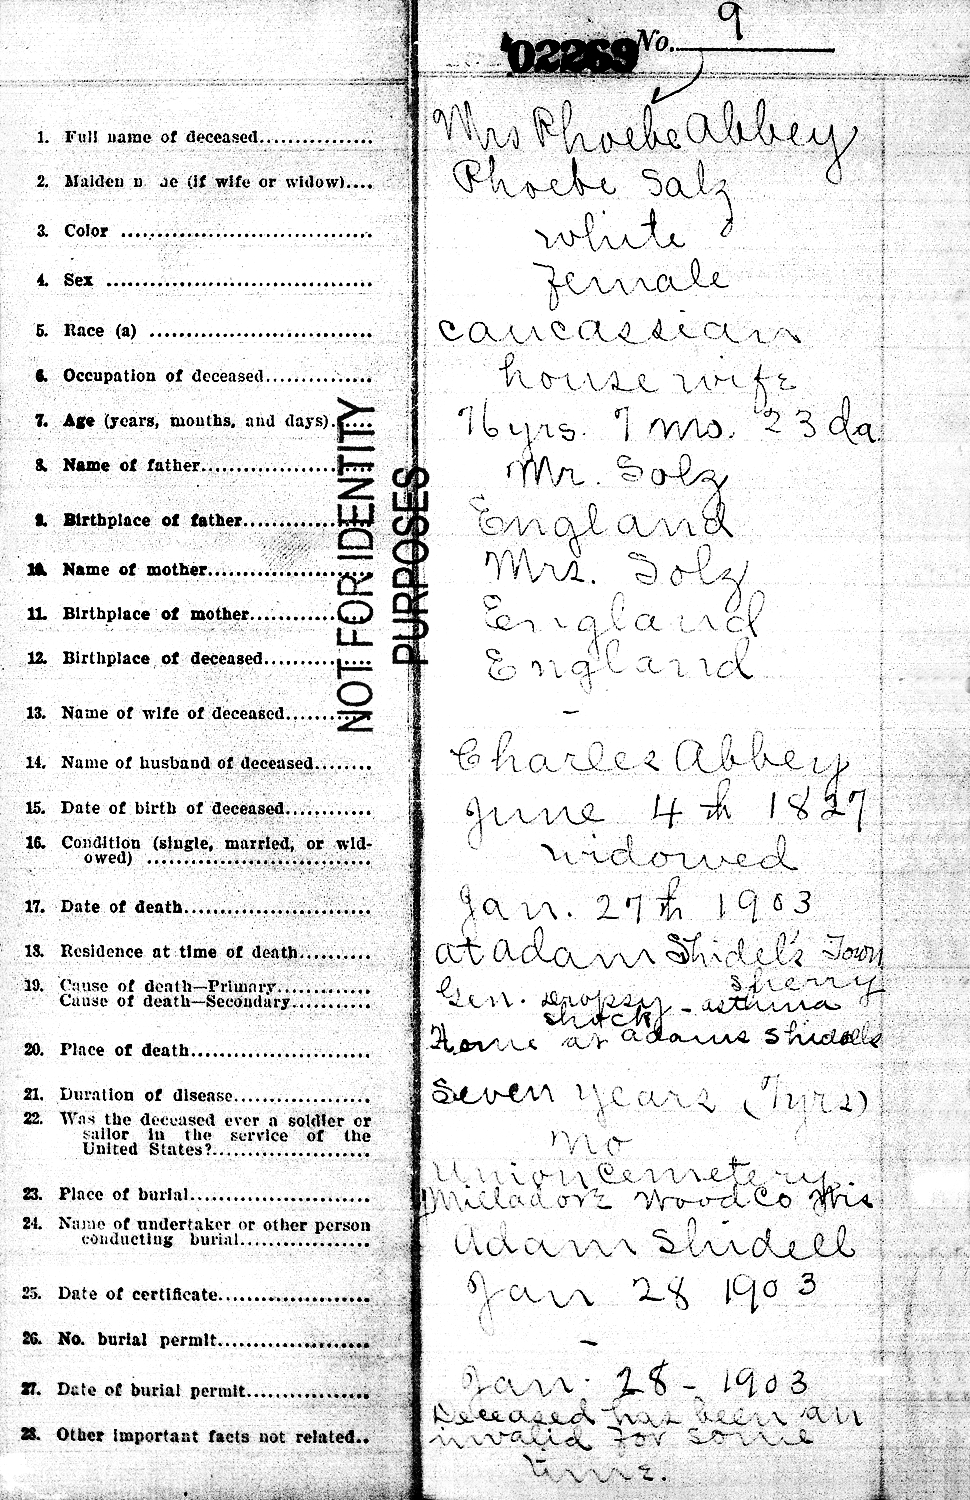 02269 No. 9
1. Full name of deceased................ Mrs Phoebe Abbey
2. Maiden n  e (if wife or widow).... Phoebe Salz
3. Color .................................. white
4. Sex .................................... female
5. Race (a) .............................. caucassian
6. Occupation of deceased............... house wife
7. Age (years, months, and days)...... 76 yrs. 7 mo. 23 da.
8. Name of father....................... Mr. Solz
9. Birthplace of father.................. England
10. Name of mother...................... Mrs. Solz
11. Birthplace of mother................. England
12. Birthplace of deceased............... England
NOT FOR IDENTITY
PURPOSES
13. Name of wife of deceased............ –
14. Name of husband of deceased........ Charles Abbey
15. Date of birth of deceased............ June 4th 1827
16. Condition (single, married, or wid-
owed) .............................. widowed
17. Date of death......................... Jan. 27th 1903
18. Residence at time of death.......... at adam Shidel's Town
Sherry
19. Cause of death—Primary............. Gen. Dropsy - asthma
Cause of death—Secondary........... shock
20. Place of death......................... Home at adams Shidells
21. Duration of disease................... Seven years (7yrs)
22. Was the deceased ever a soldier or
sailor in the service of the
United States?...................... no
Union Cemetery
23. Place of burial......................... Milladore Wood Co Wis
24. Name of undertaker or other person
conducting burial.................. Adam Shidell
25. Date of certificate..................... Jan 28 1903
26. No. burial permit...................... –
27. Date of burial permit................. Jan. 28 - 1903
Deceased has been an
28. Other important facts not related.. invalid for some
time.